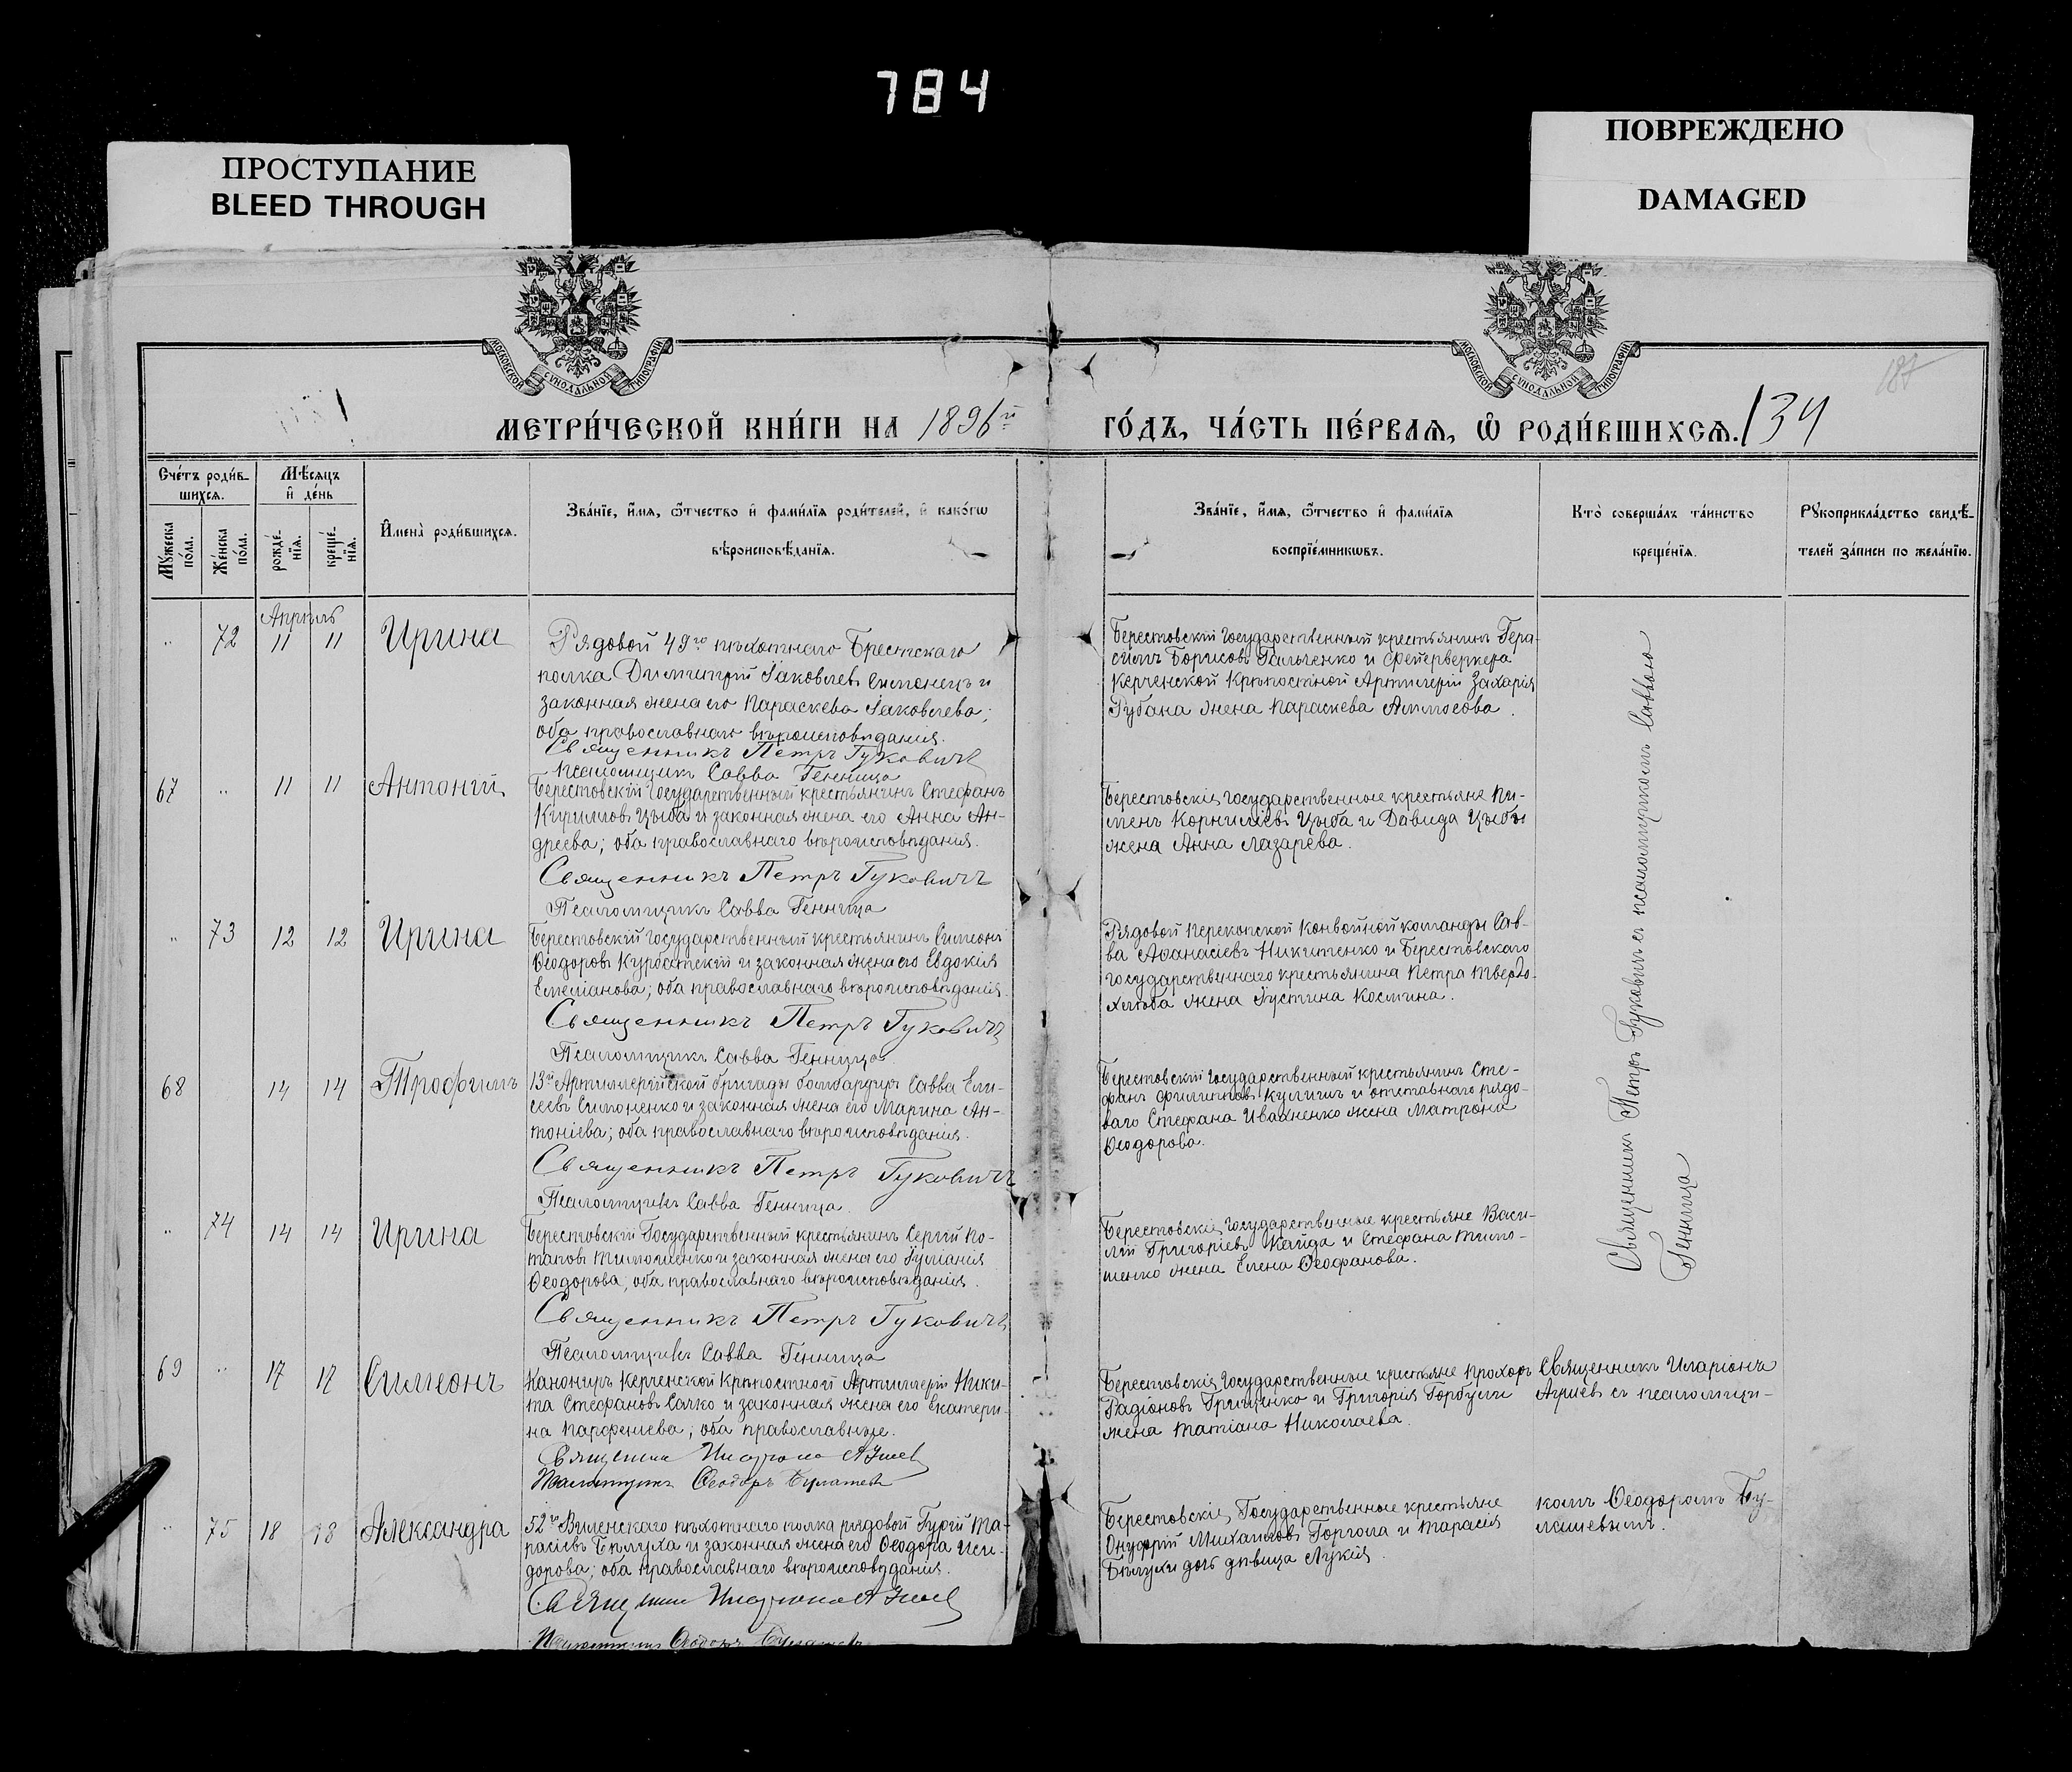 784
ПРОСТУПАНИЕ
BLEED THROUGH
ПОВРЕЖДЕНО
DAMAGED
МОСКОВСКОЙ СѴНОДАЛЬНОЙ ТИПОГРАФІИ
МОСКОВСКОЙ СѴНОДАЛЬНОЙ ТИПОГРАФІИ
187
МЕТРИ́ЧЕСКОЙ КНИ́ГИ НА 1896й
ГО́ДЪ, ЧА́СТЬ ПЕ́РВАѦ, Ѡ РОДИ́ВШИХСѦ. 134
Сче́тъ роди́в-
шихсѧ.
Мѣ́сѧцъ
и҆ де́нь
Мꙋ́жеска
по́ла.
Же́нска
по́ла.
рожде́-
нїѧ.
креще́-
нїѧ.
И҆мена̀ роди́вшихсѧ.
Зва́нїе, и҆́мѧ, ѻ҆́тчество и҆ фами́лїѧ роди́телей, и҆ како́гѡ
вѣроисповѣ́данїѧ.
Зва́нїе, и҆́мѧ, ѻ҆́тчество и҆ фами́лїѧ
воспрїе́мникѡвъ.
Кто̀ соверша́лъ та́инство
креще́нїѧ.
Рꙋкоприкла́дство свидѣ́-
телей за́писи по жела́нїю.
Апрѣль
" 72 11 11 Ирина
Рядовой 49го пѣхотнаго Брестскаго
полка Димитрій Іаковлевъ Симонецъ и
законная жена его Параскева Іаковлева;
оба православнаго вѣроисповѣданія.
Священникъ Петръ Гуковичъ
Псаломщикъ Савва Генница
Берестовскій Государственный крестьянинъ Гера-
симъ Борисовъ Гальченко и Фейерверкера
Керченской Крѣпостной Артилеріи Захарія
Губана жена Параскева Аммосова.
67 " 11 11 Антоній
Берестовскій Государственный крестьянинъ Стефанъ
Кирилловъ Цыба и законная жена его Анна Ан-
дреева; оба православнаго вѣроисповѣданія.
Священникъ Петръ Гуковичъ
Псаломщикъ Савва Генница
Берестовскіе государственные крестьяне Пи-
менъ Корниліевъ Цыба и Давида Цыбы
жена Анна Лазарева.
" 73 12 12 Ирина
Берестовскій Государственный крестьянинъ Симеонъ
Ѳеодоровъ Курбатскій и законная жена его Евдокія
Емеліанова; оба православнаго вѣроисповѣданія.
Священникъ Петръ Гуковичъ
Псаломщикъ Савва Генница
Рядовой Перекопской Конвойной команды Сав-
ва Аѳанасіевъ Никитенко и Берестовскаго
государственнаго крестьянина Петра Твердо-
хлѣба жена Іустина Космина.
68 14 14 Трофимъ
13й Артиллерійской бригады бомбардиръ Савва Ели-
сеевъ Симоненко и законная жена его Марина Ан-
тоніева; оба православнаго вѣроисповѣданія.
Священникъ Петръ Гуковичъ
Псаломщикъ Савва Генница.
Берестовскій Государственный крестьянинъ Сте-
фанъ Филипповъ Кулишъ и отставнаго рядо-
ваго Стефана Ивахненко жена Матрона
Ѳеодорова.
" 74 14 14 Ирина
Берестовскій Государственный крестьянинъ Сергій По-
таповъ Тимошенко и законная жена его Іуліанія
Ѳеодорова; оба православнаго вѣроисповѣданія.
Священникъ Петръ Гуковичъ
Псаломщикъ Савва Генница
Берестовскіе Государственные крестьяне Васи-
лій Григоріевъ Кайда и Стефана Тимо-
шенко жена Елена Ѳеофанова.
Священникъ Петръ Гуковичъ съ псаломщикомъ Саввою
Генница
69 " 17 17 Симеонъ
Канониръ Керченской Крѣпостной Артиллеріи Ники-
та Стефановъ Салко и законная жена его Екатери-
на Парфеніева; оба православные.
Священникъ Иларіонъ Агнiевъ
Псаломщикъ Ѳеодоръ Булашевъ
Берестовскіе Государственные крестьяне Прохоръ
Радіоновъ Грищенко и Григорія Горбули
жена Татіана Николаева.
Священникъ Иларіонъ
Агнiевъ съ псаломщи-
" 75 18 18 Александра
52го Виленскаго пѣхотнаго полка рядовой Гурій Та-
расіевъ Бѣлуха и законная жена его Ѳеодора Иси-
дорова; оба православнаго вѣроисповѣданія.
Священникъ Иларіонъ Агнiевъ
Псаломщикъ Ѳеодоръ Булашевъ
Берестовскіе Государственные крестьяне
Онуфрій Михаиловъ Горгола и Тарасія
Бѣлухи дочь дѣвица Лукія.
комъ Ѳеодоромъ Бу-
лашевымъ.